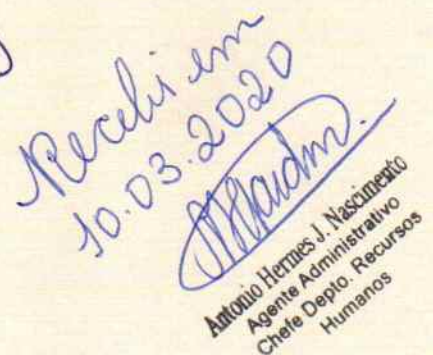 Recebi em
10.03.2020
Antonio Hermes J. Nascimento
Agente Administrativo
Chefe Depto. Recursos
Humanos